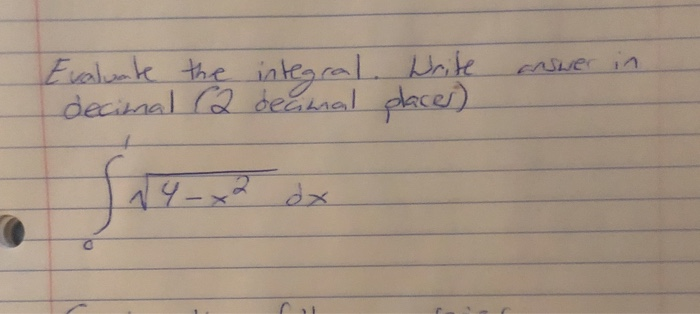 Evaluate the integral. Write answer in
decimal (2 decimal places)
1
∫ √4-x² dx
0